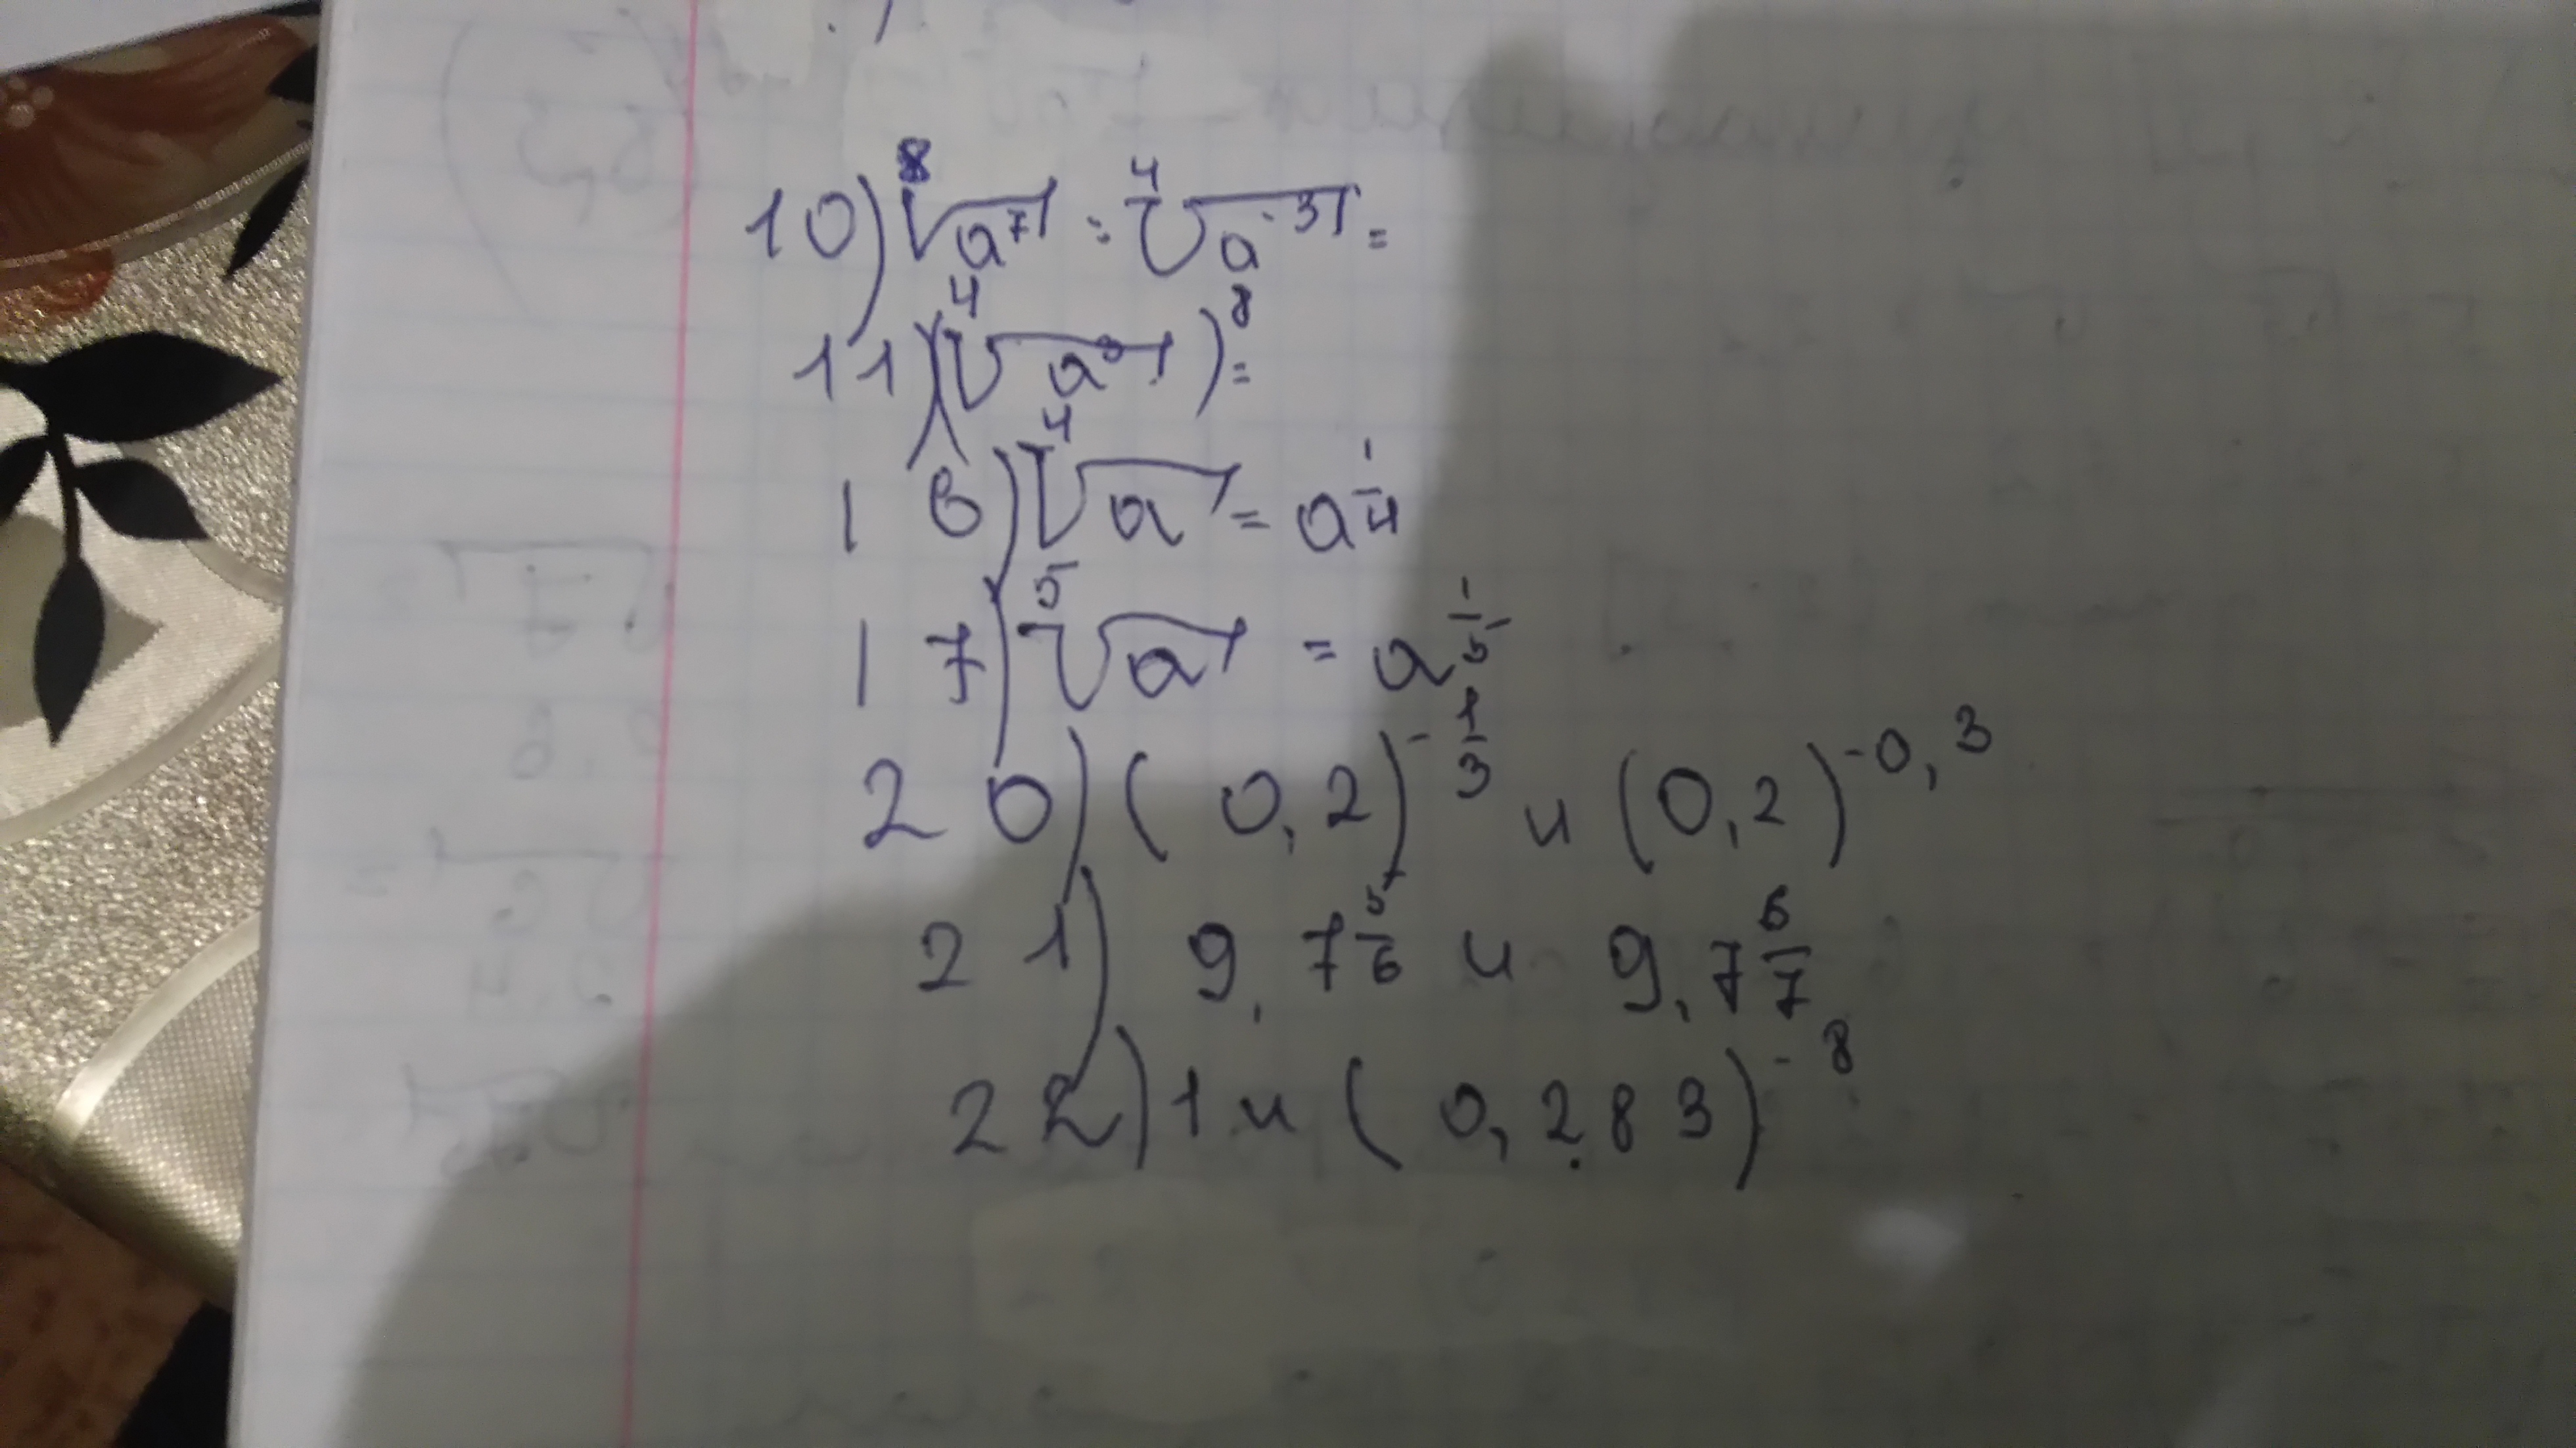 10) ⁸√a⁷ : ⁴√a⁻³ =
11) (⁴√a³)⁸ =
16) ⁴√a = a^(1/4)
17) ⁵√a = a^(1/5)
20) (0,2)^(-1/3) и (0,2)^(-0,3)
21) 9,7^(5/6) и 9,7^(6/7)
22) 1 и (0,283)^(-8)